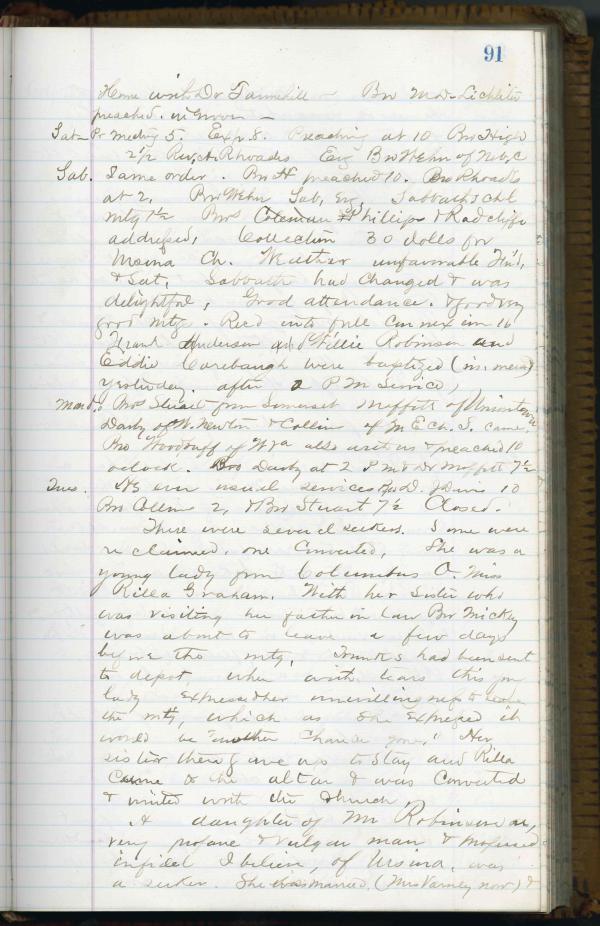 91
Home with Dr Tannehill – Bro M.D. Lichliter
preached. in Grove –
Sat – Pr meeting 5. Exp. 8. Preaching at 10 Bro High
2½ Rev, A. Rhoades Eve'g Bro Wehn of
Sab. Same order. Bro H preached 10. Bro Rhoads
at 2, Bro Wehn Sab, Eve, Sabbath Schl
mtg 1½ Bros Coleman Phillips & Radcliffe
addressed, Collection 30 dolls for
Ursina Ch. Weather unfavorable Frid,
& Sat, Sabbath had Changed & was
delightful, Good attendance. & good very
good mtgs. Rec'd into full Connexion 16
Frank Anderson and Willie Robinson and
Eddie Corebaugh were baptized
yesterday, after a P M Service,
Mond. Bros Stuart from Somerset Moffitt of Uniontown
Darby of W. Newton & Collier of M E Ch. S. came.
Bro Woodruff of W Va also with us & preached 10
oclock. Bro Darby at 2 P M & Dr Moffitt 7½
Tues. As our usual services Bro D. J Davis 10
Bro Allen 2, & Bro Stuart 7½ Closed.
There were several seekers. Some were
reclaimed, one Converted, She was a
young lady from Columbus O. Miss
Rilla Graham. With her Sister who
was visiting her father in law Bro Mickey
was about to leave a few days
before the mtg, Trunks had been sent
to depot, when with tears this yn
lady expressed her unwillingness to leave
the mtg, which as she expressed it
would be "another Chance gone." Her
sister then gave up to stay and Rilla
Came to the altar & was Converted
& united with the Church,
A daughter of Mr Robinson a,
very profane & vulgar man & professed
infidel I believe, of Ursina, was
a seeker. She was married, (Mrs now) &